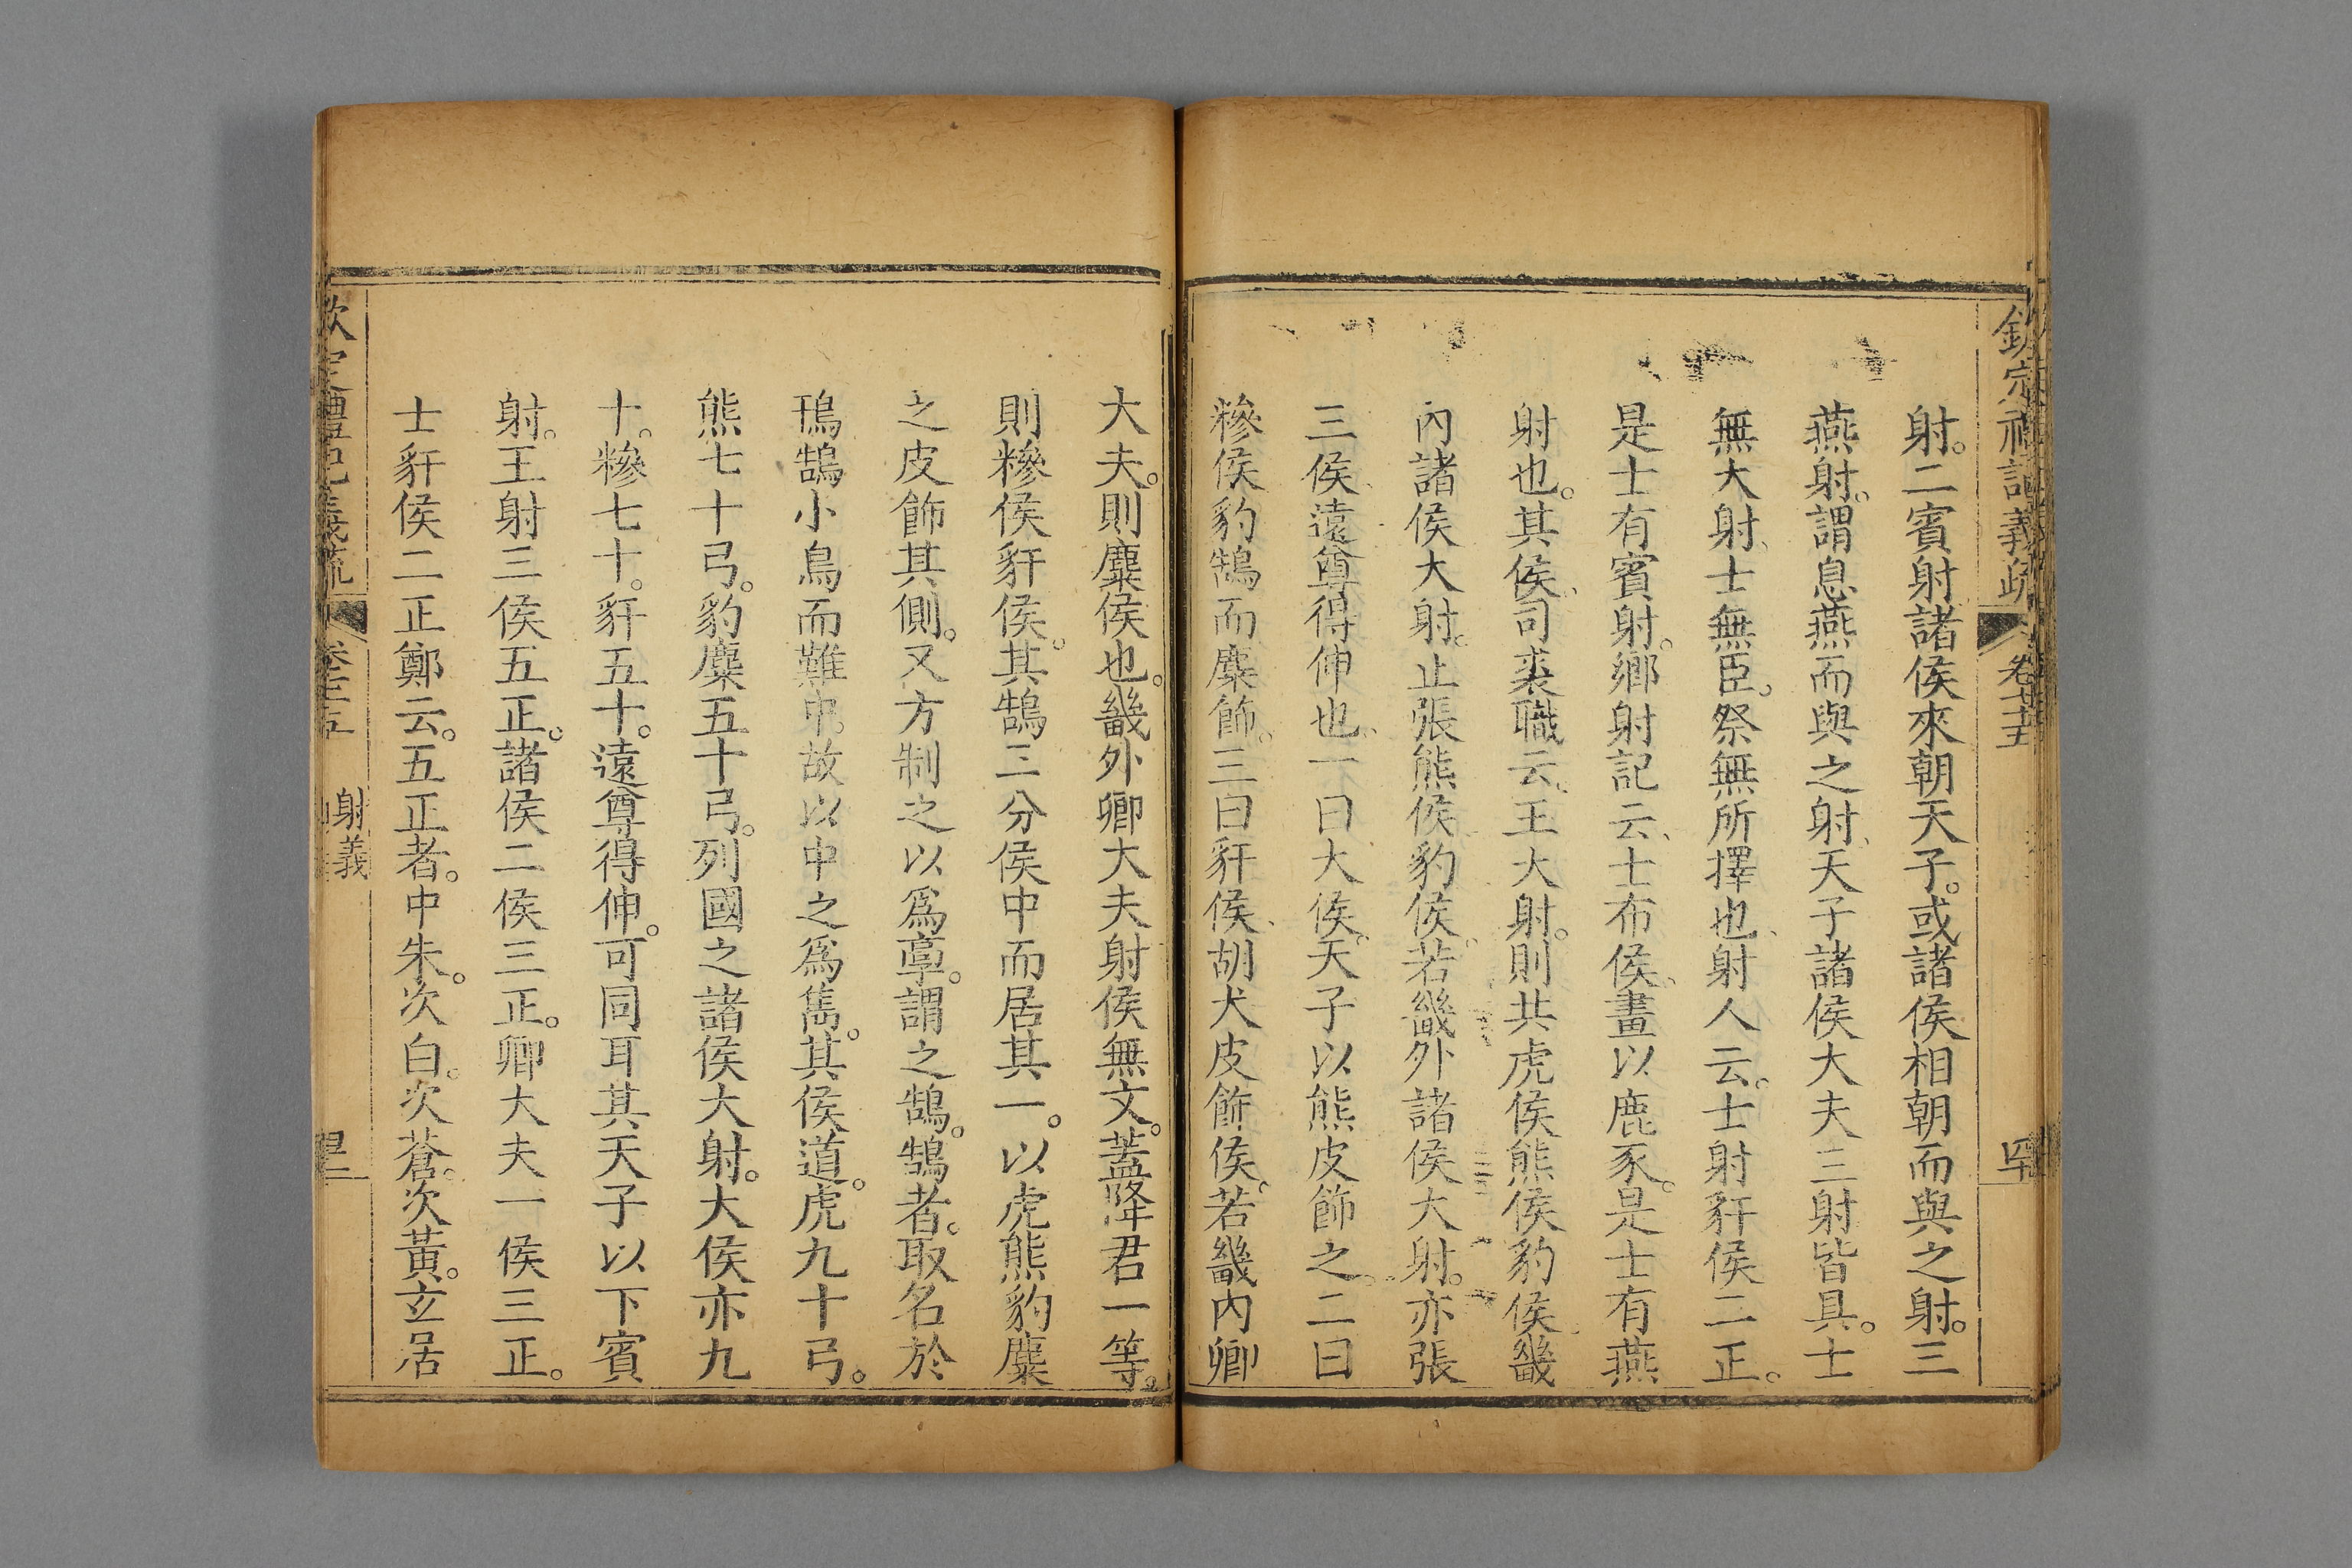 欽定禮記義疏 卷七十五
射。二賓射諸侯來朝天子。或諸侯相朝而與之射。三
燕射。謂息燕而與之射、天子諸侯大夫三射皆具。士
無大射、士無臣。祭無所擇也、射人云。士射豻侯二正。
是士有賓射。鄉射記云、士布侯。畫以鹿豕。是士有燕
射也。其侯、司裘職云、王大射。則共虎侯熊侯豹侯、畿
內諸侯大射。止張熊侯豹侯。若畿外諸侯大射。亦張
三侯遠尊得伸也。一曰大侯。天子以熊皮飾之。二曰
糝侯、豹鵠而麋飾。三曰豻侯、胡犬皮飾侯。若畿內卿
大夫。則麋侯也。畿外卿大夫射侯無文。蓋降君一等。
則糝侯豻侯。其鵠三分侯中而居其一。以虎熊豹麋
之皮飾其側。又方制之以爲𩫖。謂之鵠。鵠者。取名於
鳱鵠小鳥而難中。故以中之爲雋。其侯道。虎九十弓。
熊七十弓。豹麋五十弓。列國之諸侯大射。大侯亦九
十。糝七十。豻五十。遠尊得伸。可同耳其天子以下賓
射。王射三侯五正。諸侯二侯三正。卿大夫一侯三正。
士豻侯二正鄭云。五正者。中朱。次白。次蒼。次黃。玄居
欽定禮記義疏 卷七十五 射義